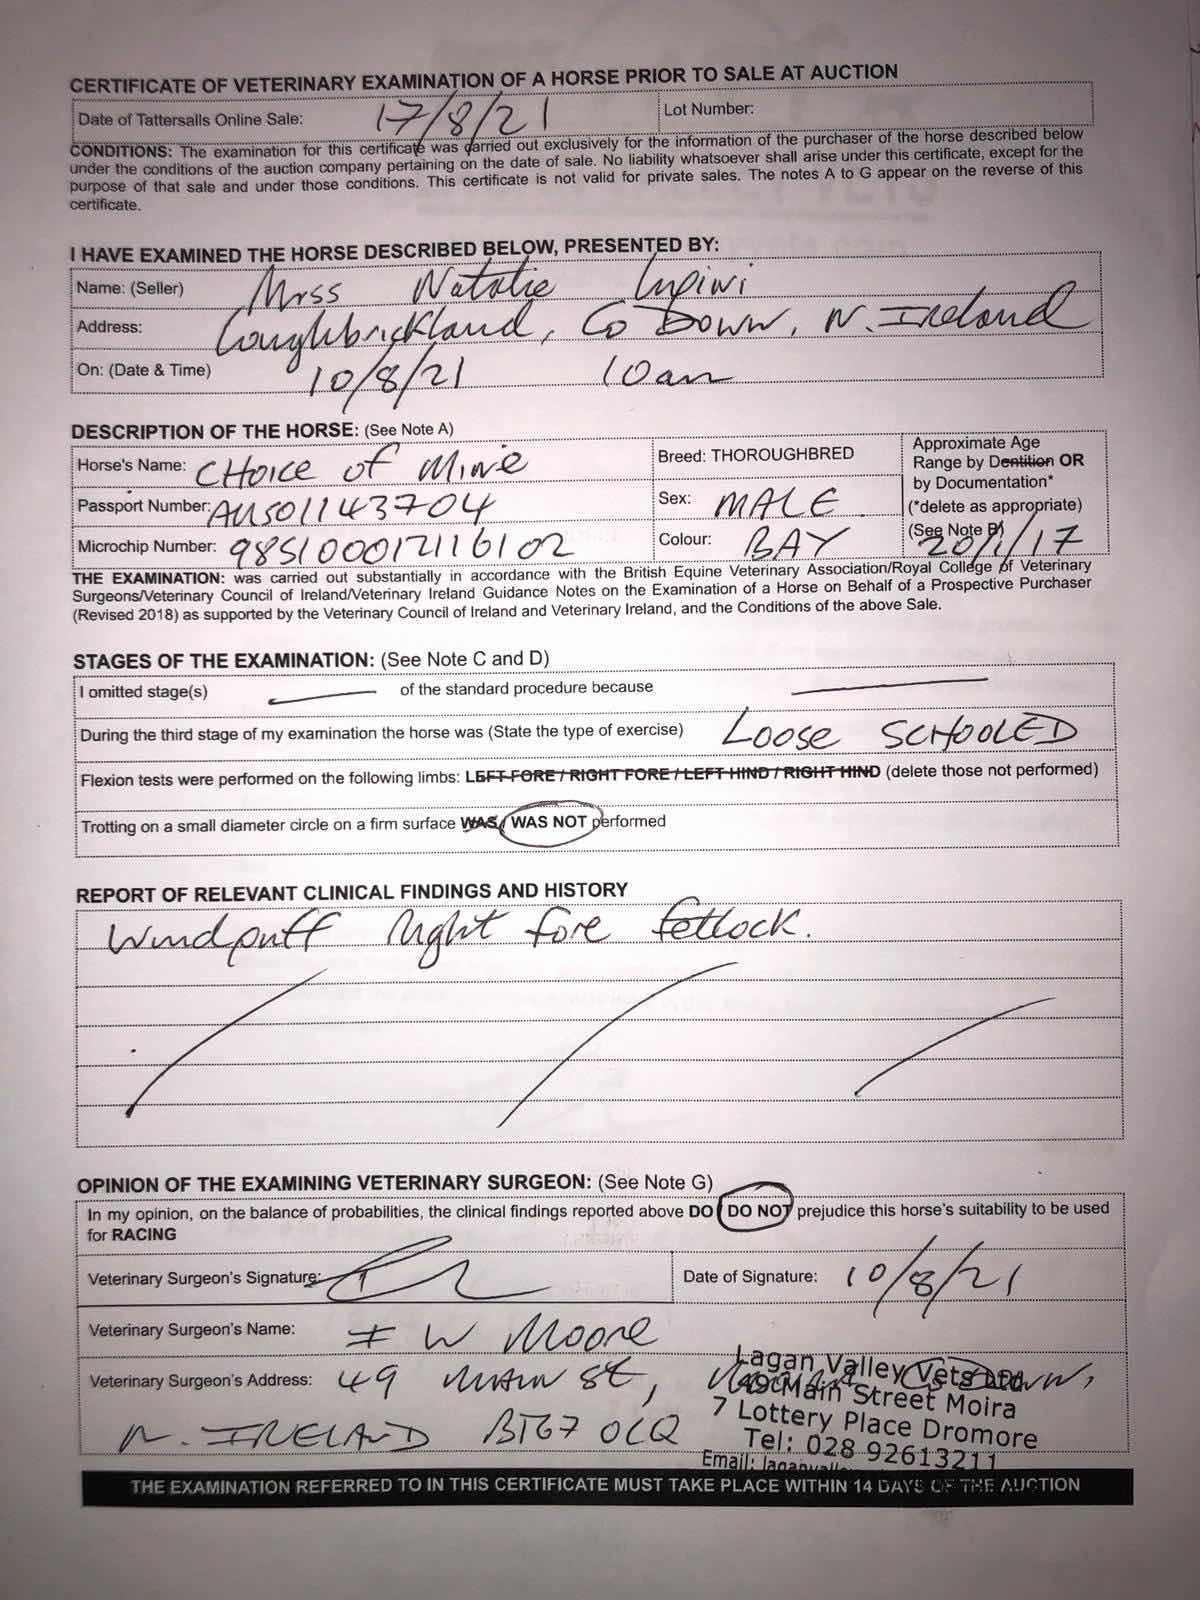 CERTIFICATE OF VETERINARY EXAMINATION OF A HORSE PRIOR TO SALE AT AUCTION
Date of Tattersalls Online Sale: 17/8/21 Lot Number:
CONDITIONS: The examination for this certificate was carried out exclusively for the information of the purchaser of the horse described below
under the conditions of the auction company pertaining on the date of sale. No liability whatsoever shall arise under this certificate, except for the
purpose of that sale and under those conditions. This certificate is not valid for private sales. The notes A to G appear on the reverse of this
certificate.
I HAVE EXAMINED THE HORSE DESCRIBED BELOW, PRESENTED BY:
Name: (Seller) Mrss Natalie Lupini
Address: Loughbrickland, Co Down, N. Ireland
On: (Date & Time) 10/8/21 10am
DESCRIPTION OF THE HORSE: (See Note A)
Horse's Name: CHOICE of Mine
Breed: THOROUGHBRED
Approximate Age
Range by Dentition OR
by Documentation*
(*delete as appropriate)
(See Note B)
20/1/17
Passport Number: AUS01143704
Sex: MALE
Microchip Number: 985100012116102
Colour: BAY
THE EXAMINATION: was carried out substantially in accordance with the British Equine Veterinary Association/Royal College of Veterinary
Surgeons/Veterinary Council of Ireland/Veterinary Ireland Guidance Notes on the Examination of a Horse on Behalf of a Prospective Purchaser
(Revised 2018) as supported by the Veterinary Council of Ireland and Veterinary Ireland, and the Conditions of the above Sale.
STAGES OF THE EXAMINATION: (See Note C and D)
I omitted stage(s) of the standard procedure because
During the third stage of my examination the horse was (State the type of exercise) LOOSE SCHOOLED
Flexion tests were performed on the following limbs: LEFT FORE / RIGHT FORE / LEFT HIND / RIGHT HIND (delete those not performed)
Trotting on a small diameter circle on a firm surface WAS / WAS NOT performed
REPORT OF RELEVANT CLINICAL FINDINGS AND HISTORY
Windpuff Right fore fetlock.
OPINION OF THE EXAMINING VETERINARY SURGEON: (See Note G)
In my opinion, on the balance of probabilities, the clinical findings reported above DO / DO NOT prejudice this horse's suitability to be used
for RACING
Veterinary Surgeon's Signature: Date of Signature: 10/8/21
Veterinary Surgeon's Name: W Moore
Veterinary Surgeon's Address: 49 MAIN St,
N. IRELAND BT67 0LQ
Lagan Valley Vets Ltd
49 Main Street Moira
7 Lottery Place Dromore
Tel: 028 92613211
Email:
THE EXAMINATION REFERRED TO IN THIS CERTIFICATE MUST TAKE PLACE WITHIN 14 DAYS OF THE AUCTION